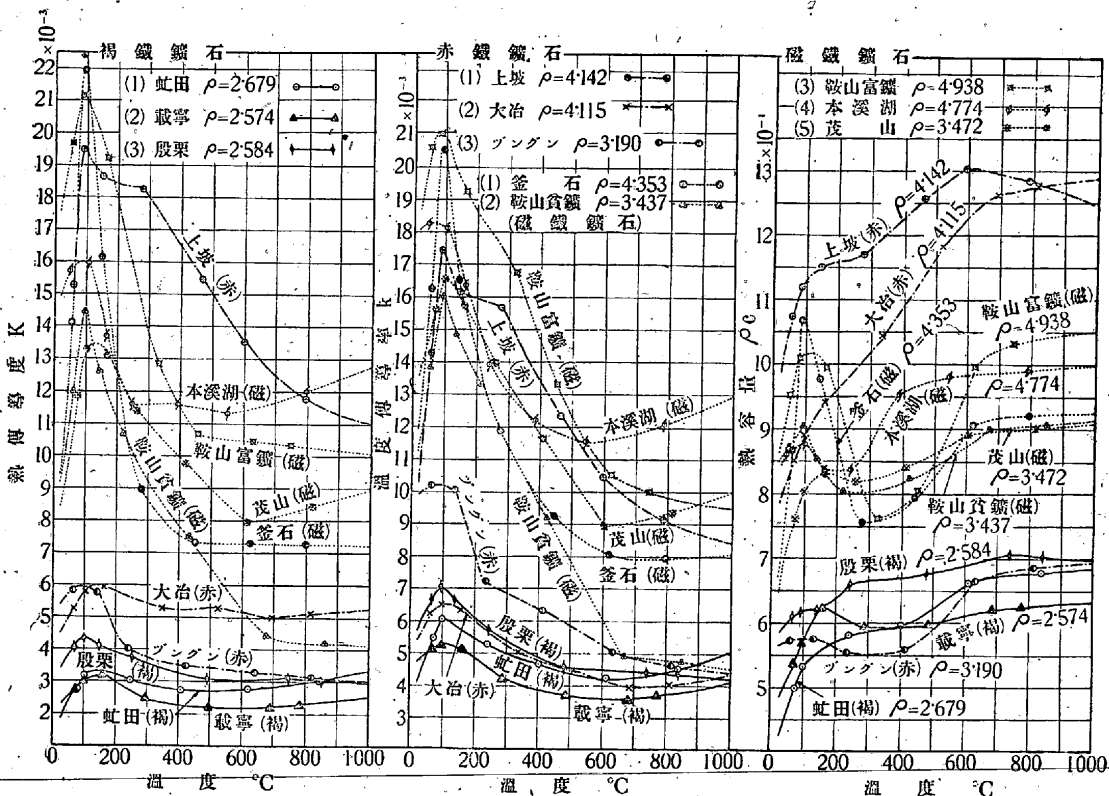 ×10⁻³
褐鐵鑛石
(1) 虻田 ρ=2·679
(2) 載寧 ρ=2·574
(3) 殷栗 ρ=2·584
22
21
20
19
18
17
16
15
14
13
12
11
10
9
8
7
6
5
4
3
2
熱傳導度 K
上坡(赤)
本溪湖(磁)
鞍山富鑛(磁)
鞍山貧鑛(磁)
茂山(磁)
釜石(磁)
大冶(赤)
ヅングン(赤)
殷栗(褐)
虻田(褐)
載寧(褐)
0 200 400 600 800 1000
溫度 ℃
赤鐵鑛石
(1) 上坡 ρ=4·142
(2) 大冶 ρ=4·115
(3) ヅングン ρ=3·190
(1) 釜石 ρ=4·353
(2) 鞍山貧鑛 ρ=3·437
(磁鐵鑛石)
×10⁻³
21
20
19
18
17
16
15
14
13
12
11
10
9
8
7
6
5
4
3
溫度傳導率 k
鞍山富鑛(磁)
上坡(赤)
本溪湖(磁)
ヅングン(赤)
鞍山貧鑛(磁)
茂山(磁)
釜石(磁)
殷栗(褐)
虻田(褐)
大冶(赤)
載寧(褐)
0 200 400 600 800 1000
溫度 ℃
磁鐵鑛石
(3) 鞍山富鑛 ρ=4·938
(4) 本溪湖 ρ=4·774
(5) 茂山 ρ=3·472
×10⁻¹
13
12
11
10
9
8
7
6
5
熱容量 ρc
上坡(赤) ρ=4·142
大冶(赤) ρ=4·115
釜石(磁) ρ=4·353
鞍山富鑛(磁)
ρ=4·938
本溪湖(磁)
ρ=4·774
茂山(磁)
ρ=3·472
鞍山貧鑛(磁)
ρ=3·437
殷栗(褐) ρ=2·584
載寧(褐) ρ=2·574
ヅングン(赤) ρ=3·190
虻田(褐) ρ=2·679
0 200 400 600 800 1000
溫度 ℃